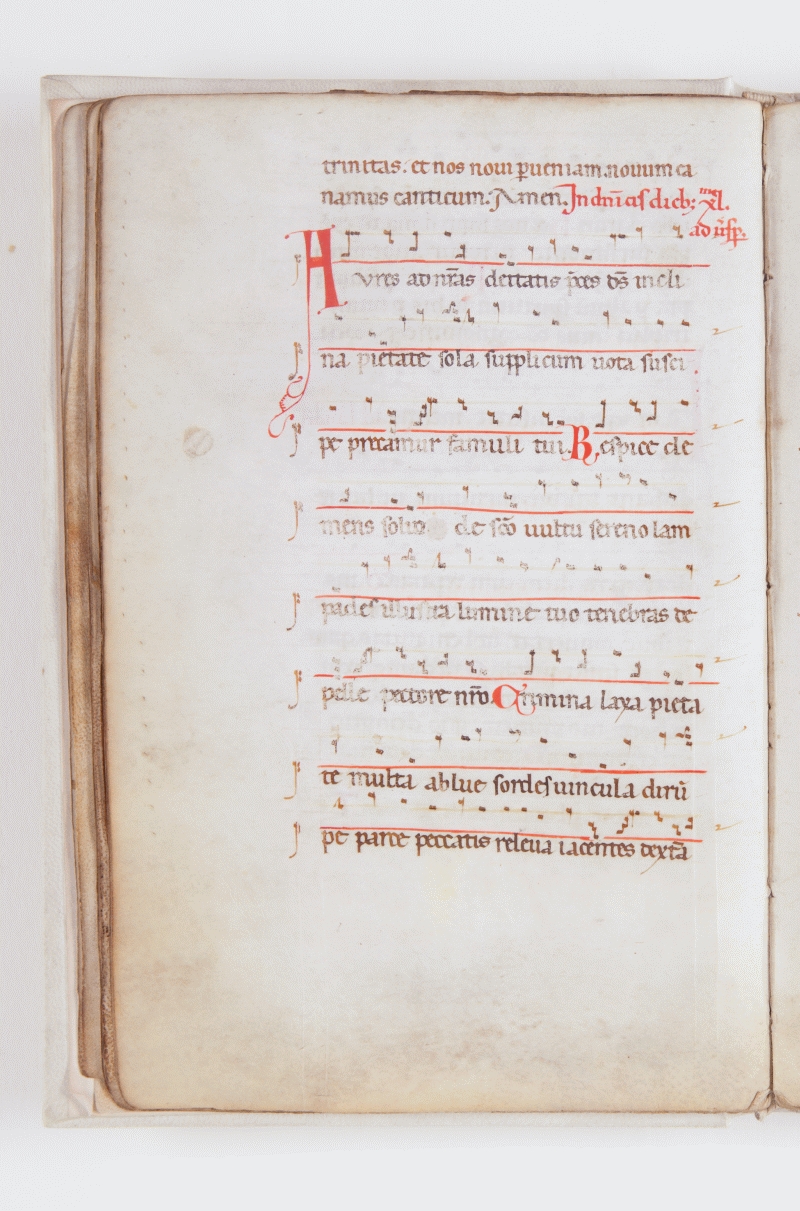 trinitas. et nos noui ꝑueniam. nouum ca
namus canticum. Amen. In dn̄icis dieb; xlme.
ad uesp̄.
Aures ad nr̄as deitatis p̄ces ds̄ incli
na pietate sola supplicum uota susci
pe precamur famuli tui. Respice cle
mens solio de sc̄o uultu sereno lam
pades illustra lumine tuo tenebras de
pelle pectore nr̄o. Crimina laxa pieta
te multa ablue sordes uincula dirū
pe parce peccatis releua iacentes dextˉa